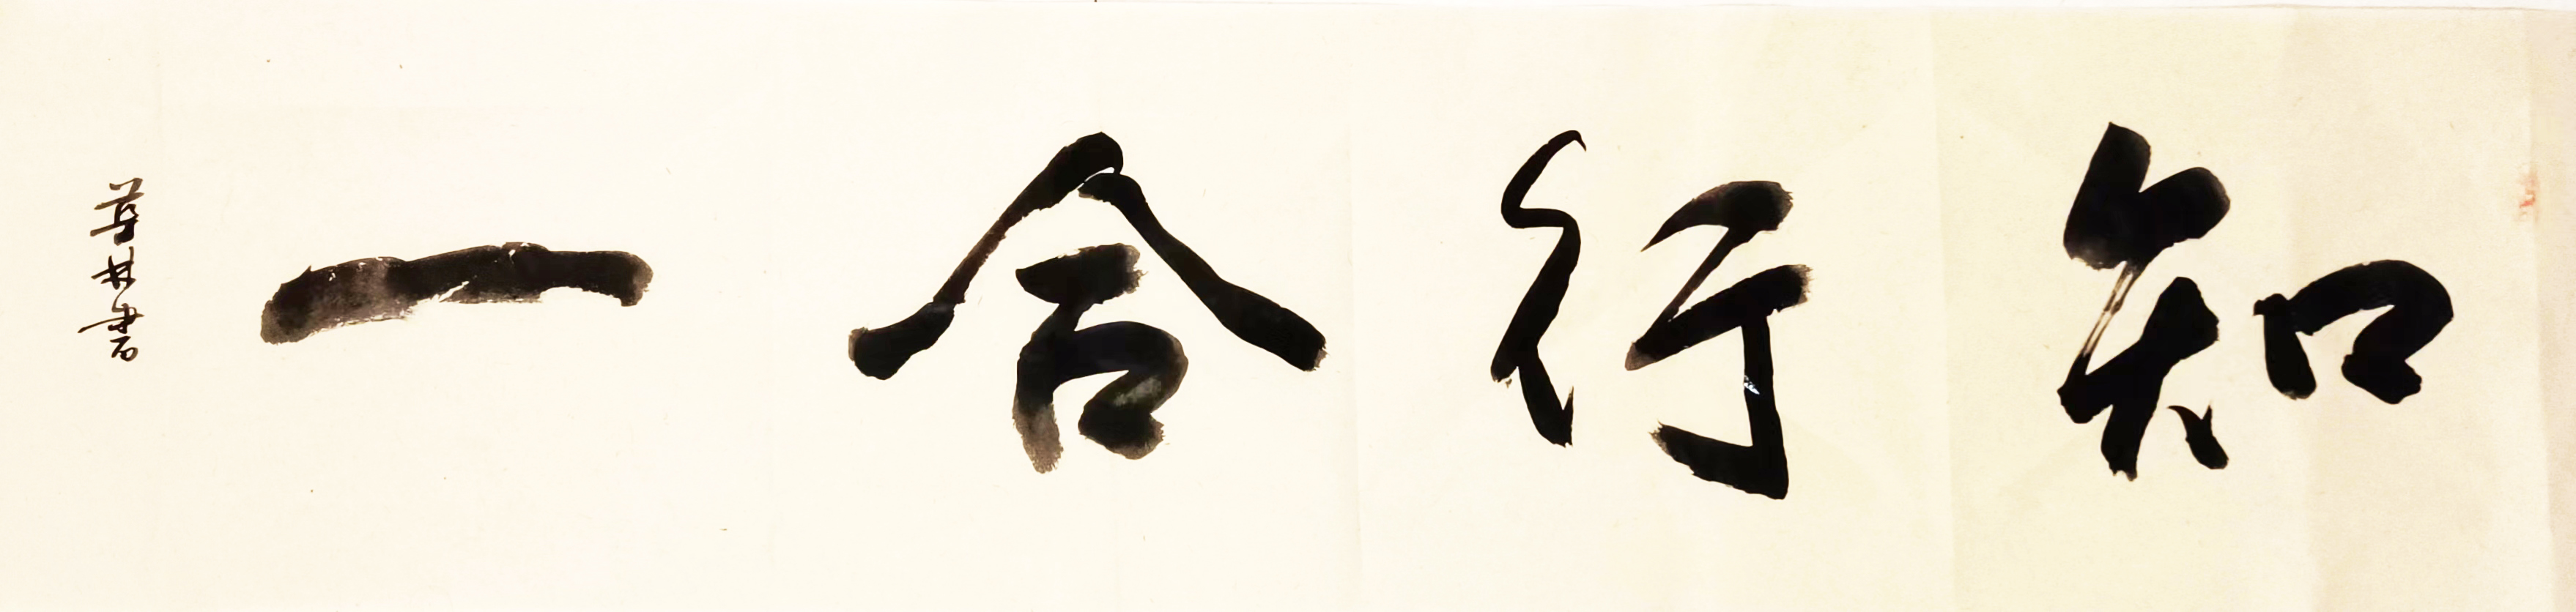 知行合一
林書